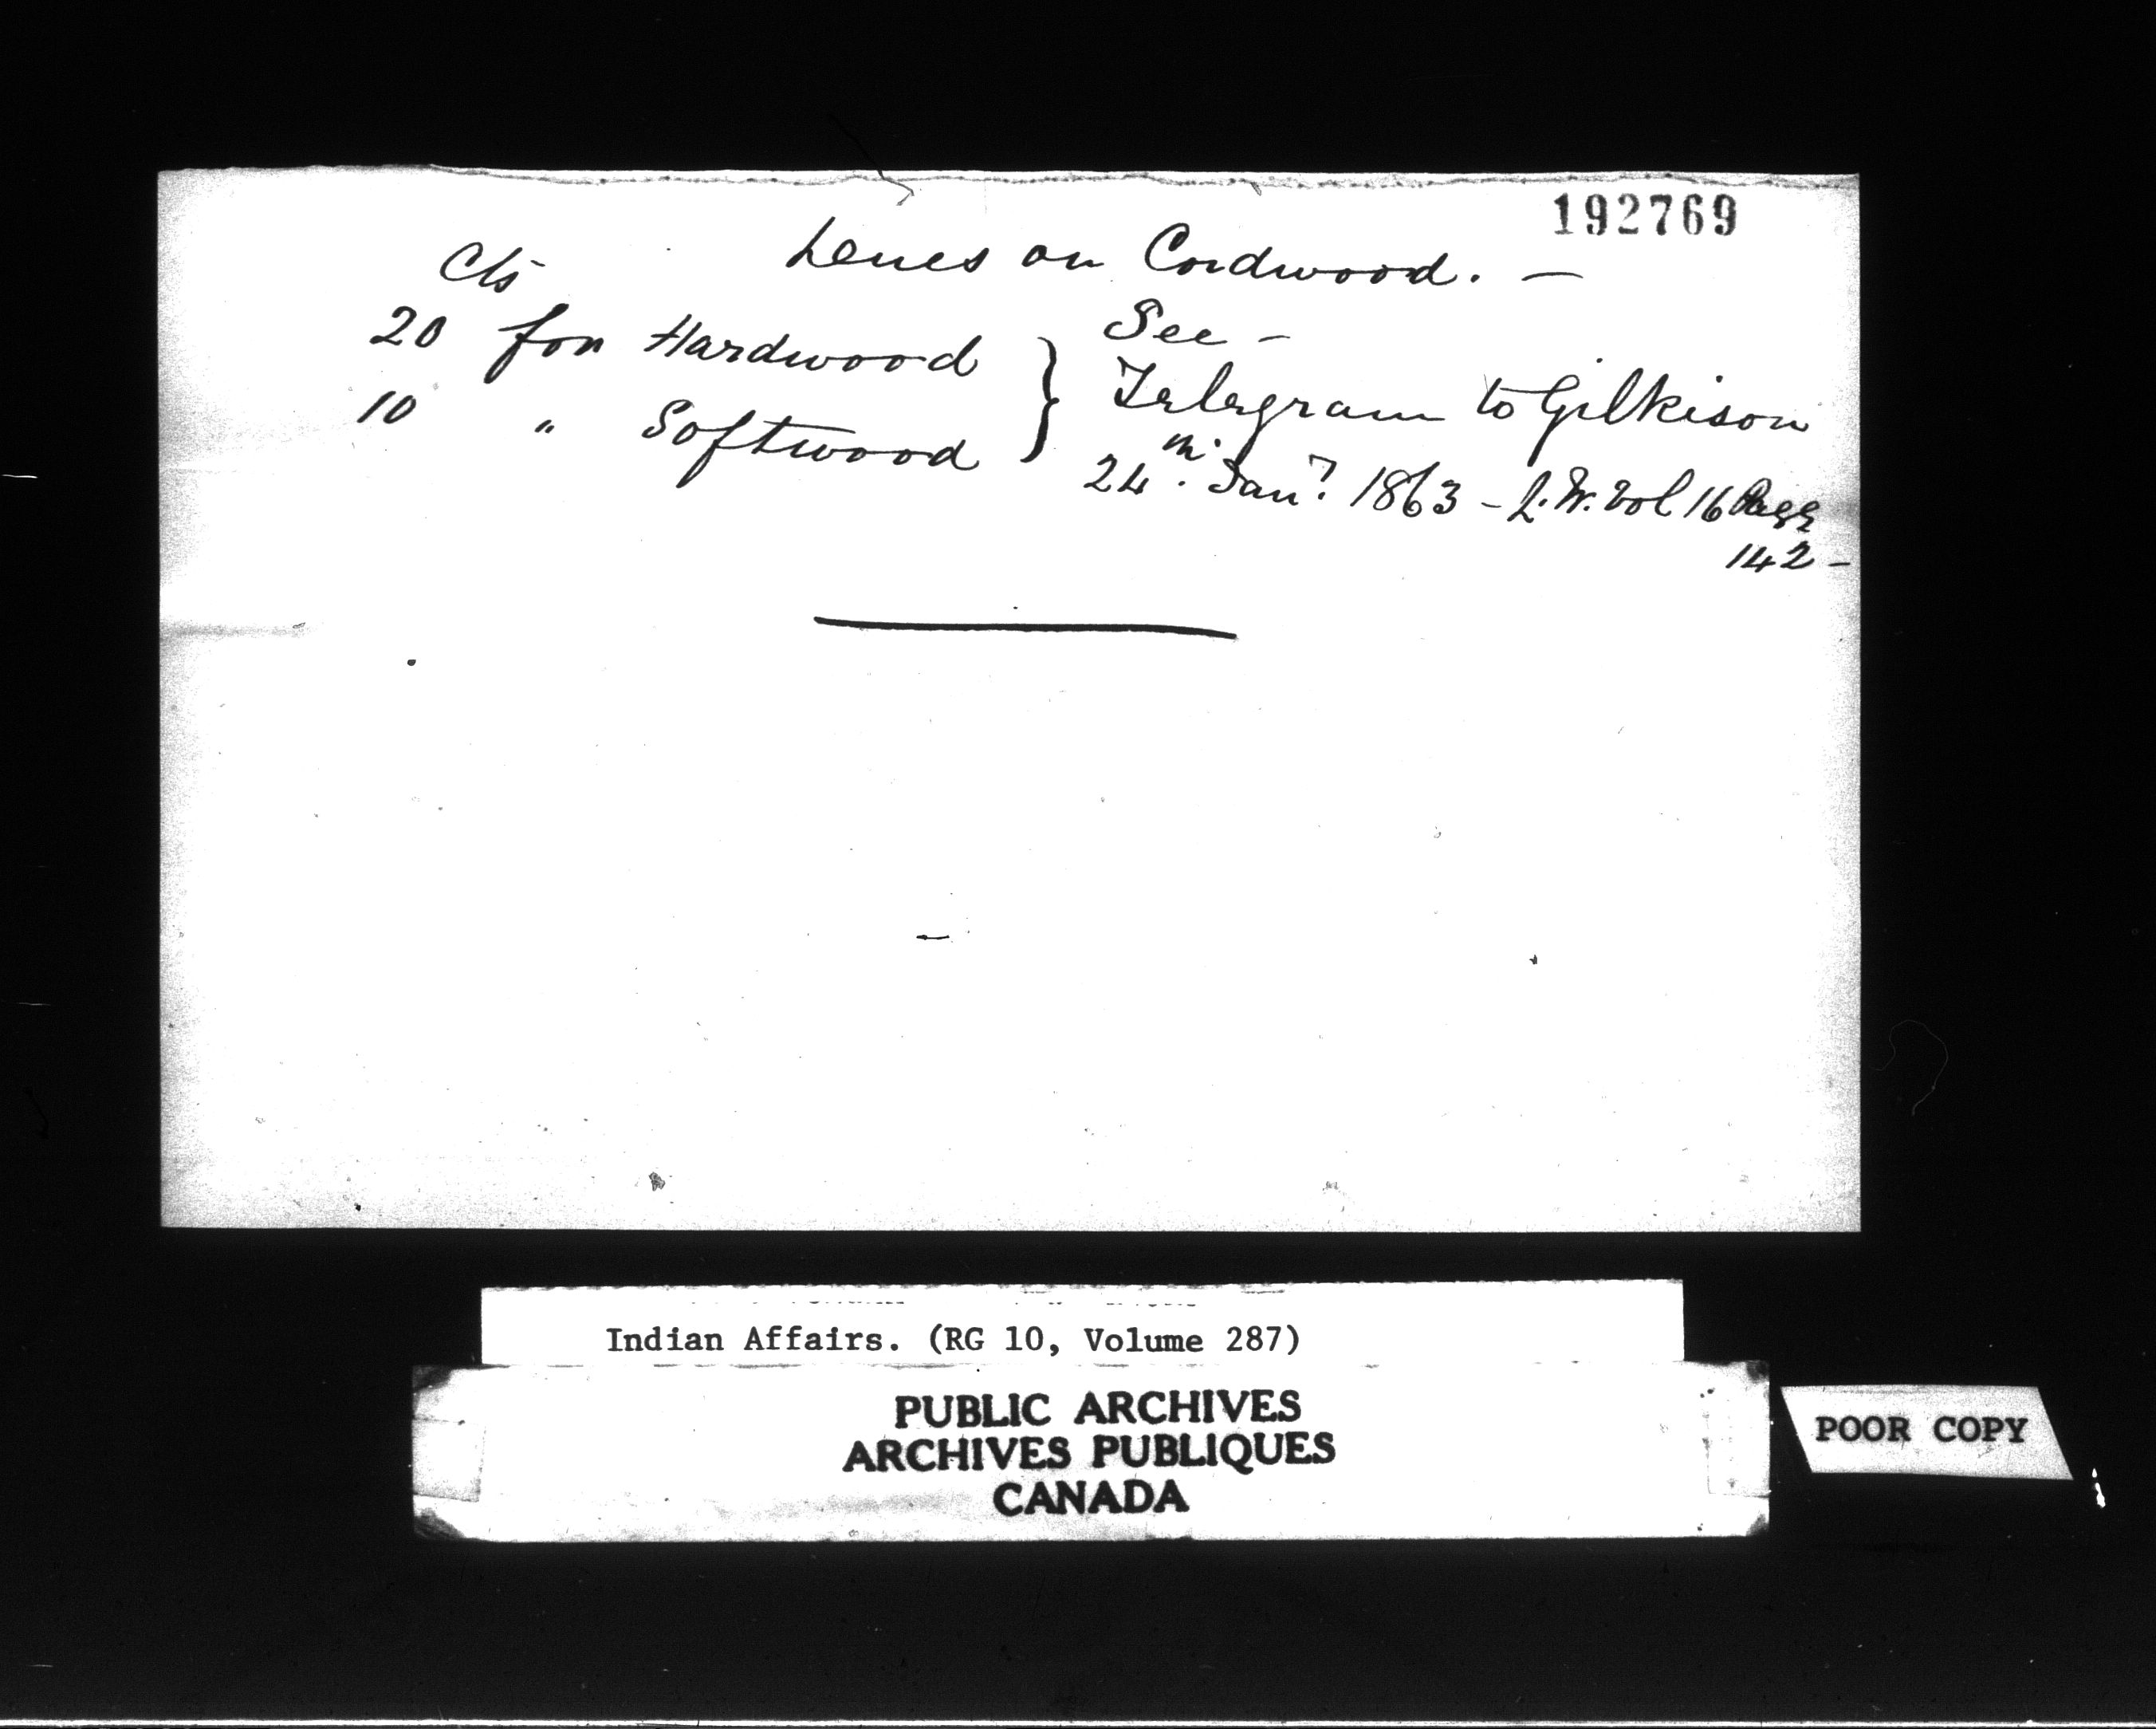 192769
Dues on Cordwood. —
Cts
20 for Hardwood } See –
10 " Softwood } Telegram to Gilkison
24th Jany 1863 – L.W. Vol 16 Page
142 –
Indian Affairs. (RG 10, Volume 287)
PUBLIC ARCHIVES
ARCHIVES PUBLIQUES
CANADA
POOR COPY